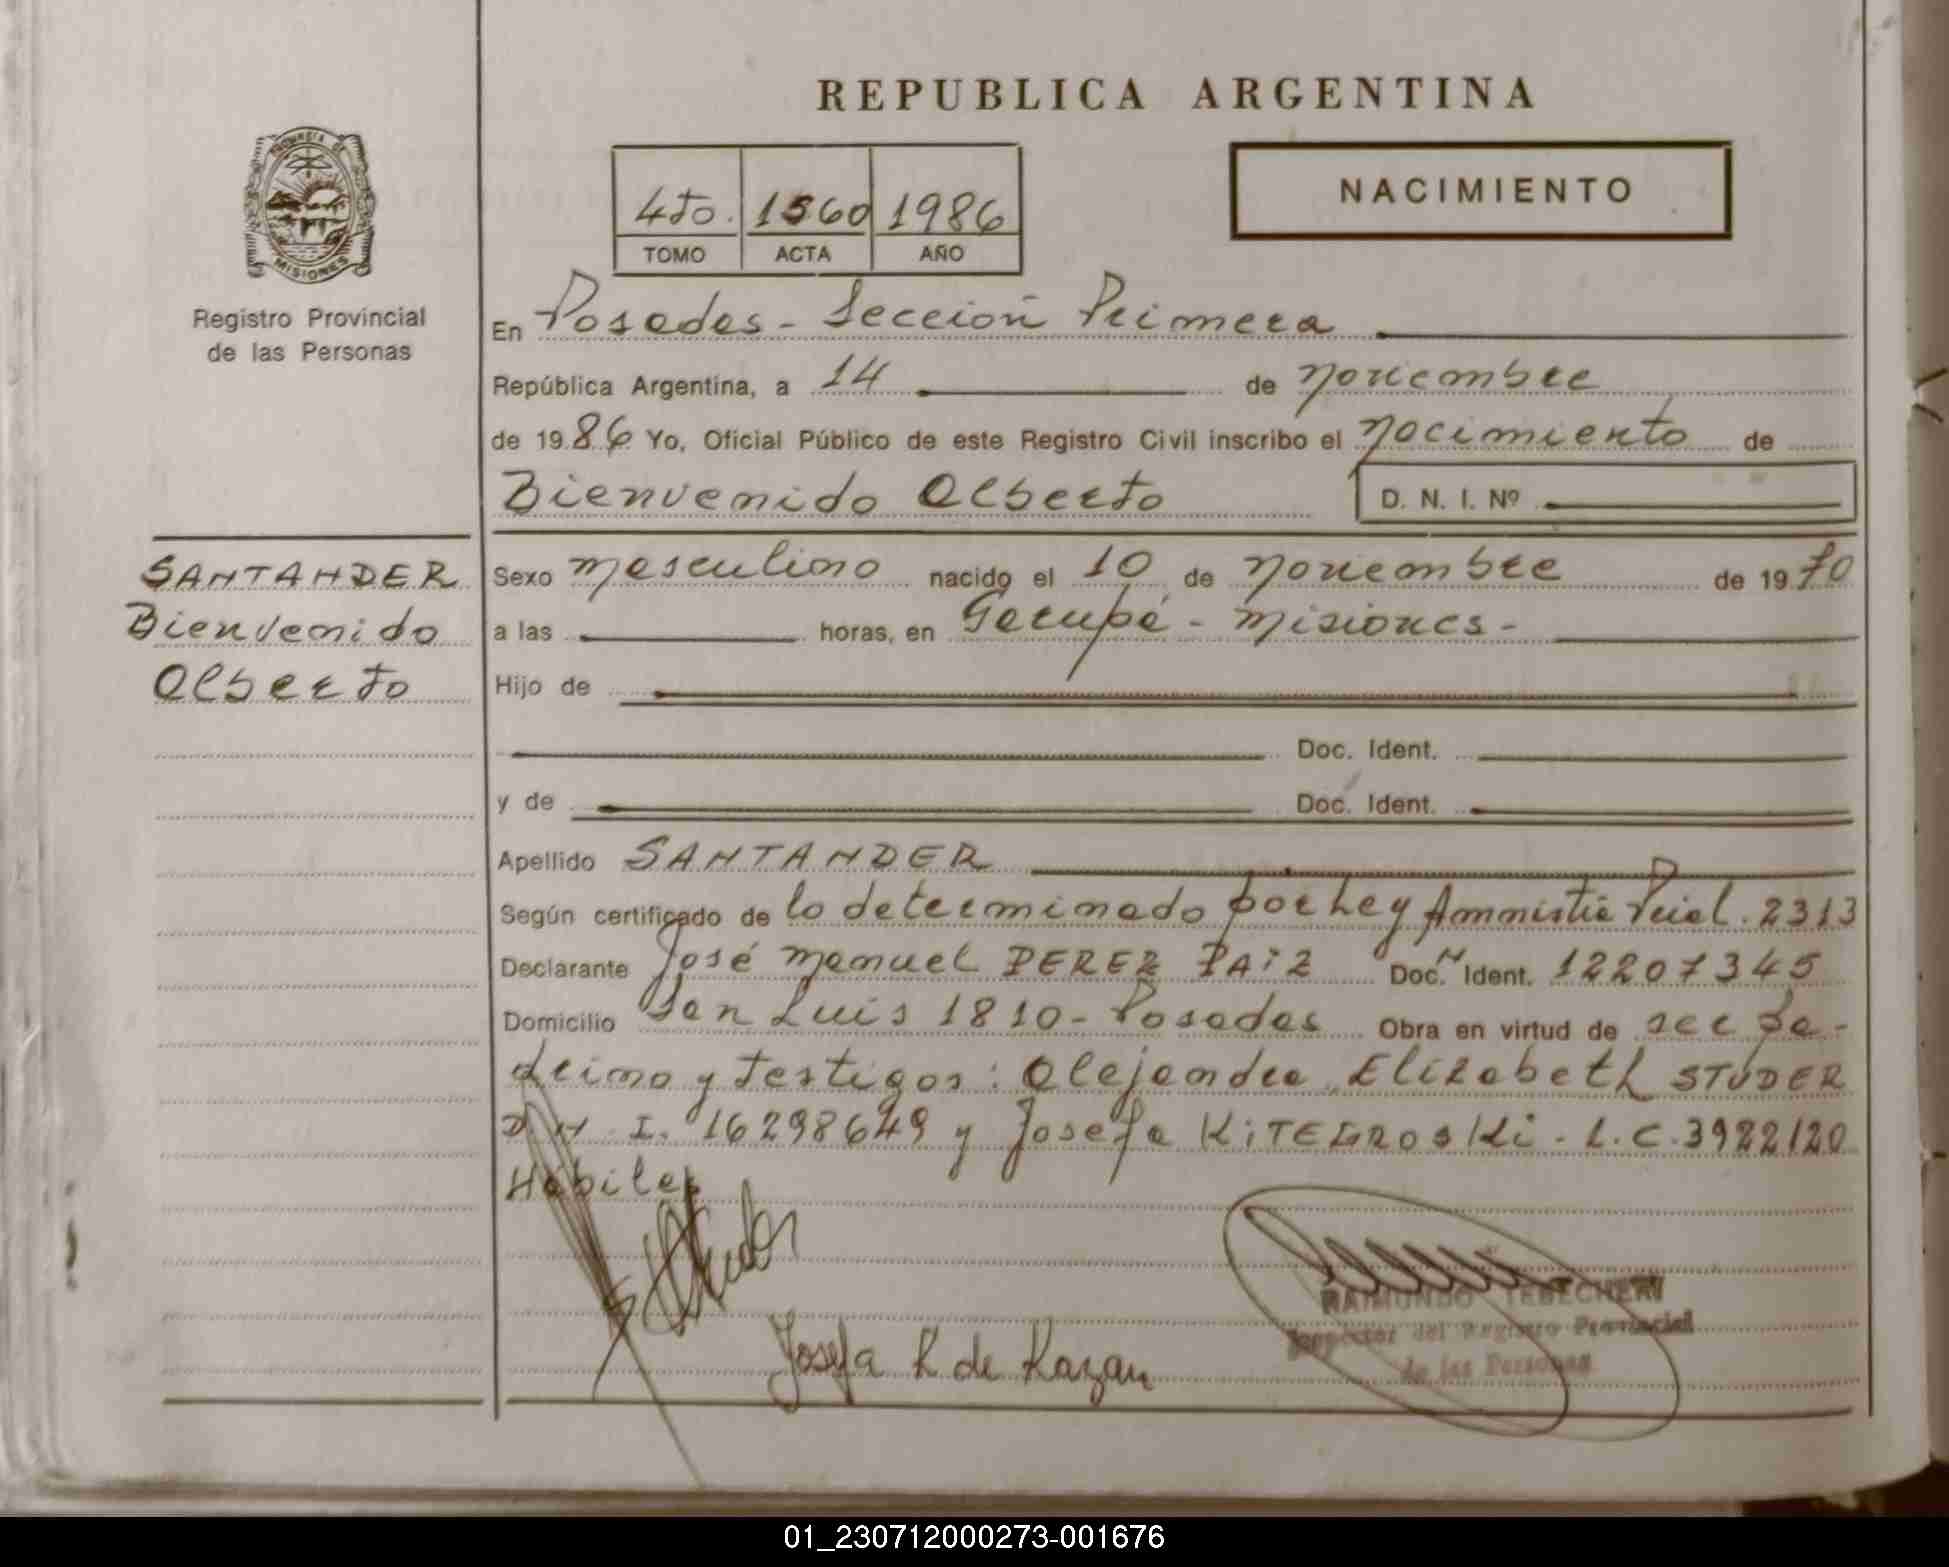 REPUBLICA ARGENTINA
PROVINCIA DE
MISIONES
Registro Provincial
de las Personas
4to. 1560 1986
TOMO ACTA AÑO
NACIMIENTO
En Posadas - Sección Primera
República Argentina, a 14 de noviembre
de 1986 Yo, Oficial Público de este Registro Civil inscribo el nacimiento de
Bienvenido Alberto D. N. I. Nº
SANTANDER
Bienvenido
Alberto
Sexo masculino nacido el 10 de noviembre de 1970
a las horas, en Garupá - Misiones -
Hijo de
Doc. Ident.
y de Doc. Ident.
Apellido SANTANDER
Según certificado de lo determinado por Ley Amnistía Pcial. 2313
Declarante José Manuel PEREZ PAIZ Doc. N Ident. 12207345
Domicilio San Luis 1810 - Posadas Obra en virtud de ser pa-
drino y testigos: Alejandra Elizabeth STUDER
D.N.I. 16298649 y Josefa KiTEGROSKi - L.C. 3922120
Habiles
Josefa K de Kazan
RAIMUNDO TEBECHERI
Inspector del Registro Provincial
de las Personas
01_230712000273-001676